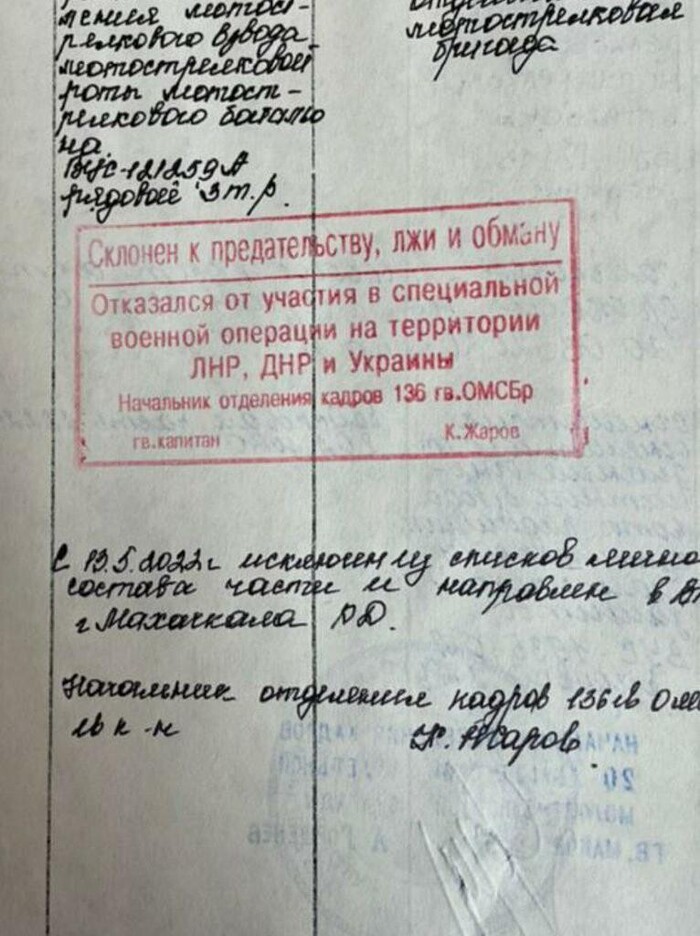 ления мотост-
релкового взвода
мотострелковой
роты мотост-
релкового батальо
на.
ВУС-121259А
рядовой 3 т.р.
мотострелковая
бригада
Склонен к предательству, лжи и обману
Отказался от участия в специальной
военной операции на территории
ЛНР, ДНР и Украины
Начальник отделения кадров 136 гв.ОМСБр
гв.капитан К.Жаров
С 13.5.2022г исключен из списков лично
состава части и направлен в В
г Махачкала РД.
Начальник отделения кадров 136
К. Жаров